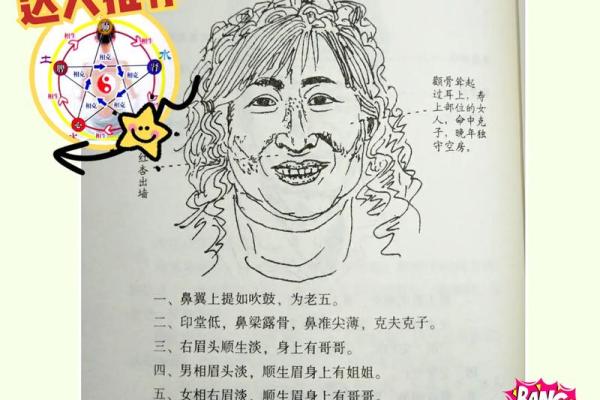 达人推荐
相生
相生
土
水
脾
肾
相克
相克
相克
相克
相生
相生
心
火
相生
颧骨耸起
过耳上，寿
上部位的女
人，命中克
子，晚年独
守空房。
红杏出墙
一、鼻翼上提如吹鼓，为老五。
二、印堂低，鼻梁露骨，鼻准尖薄，克夫克子。
三、右眉头顺生淡，身上有哥哥。
四、男相眉头淡，顺生眉身上有姐姐。
五、女相右眉淡、顺生眉身上有哥哥。
BANG